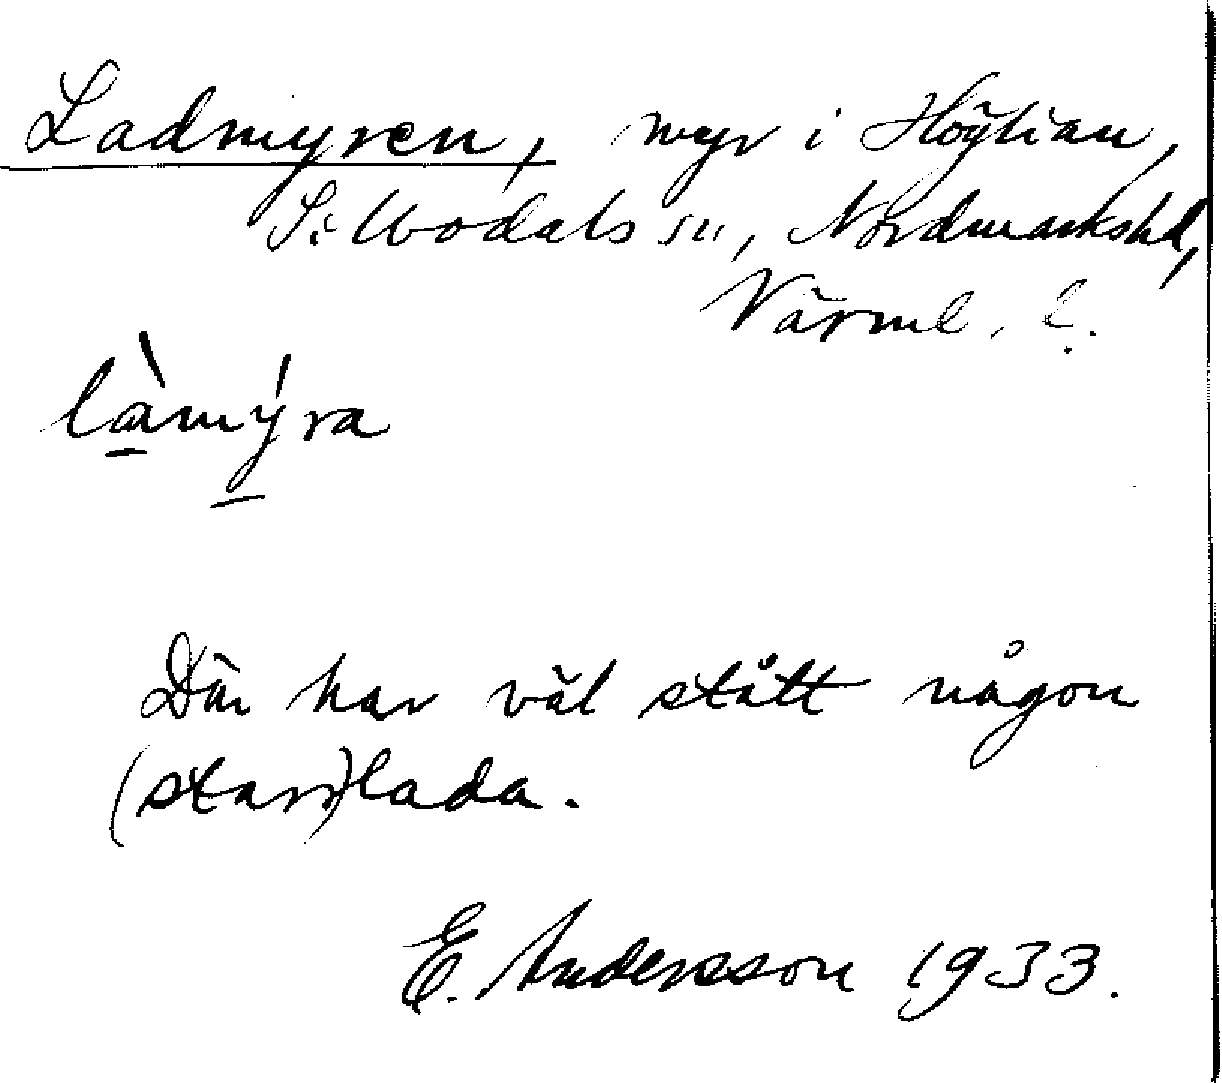 Ladmyren, myr i Höglian,
S: Ny sn, Nordmarkshd,
Värml. l.
làmýra
Där har väl stått någon
(starr)lada.
E. Andersson 1933.